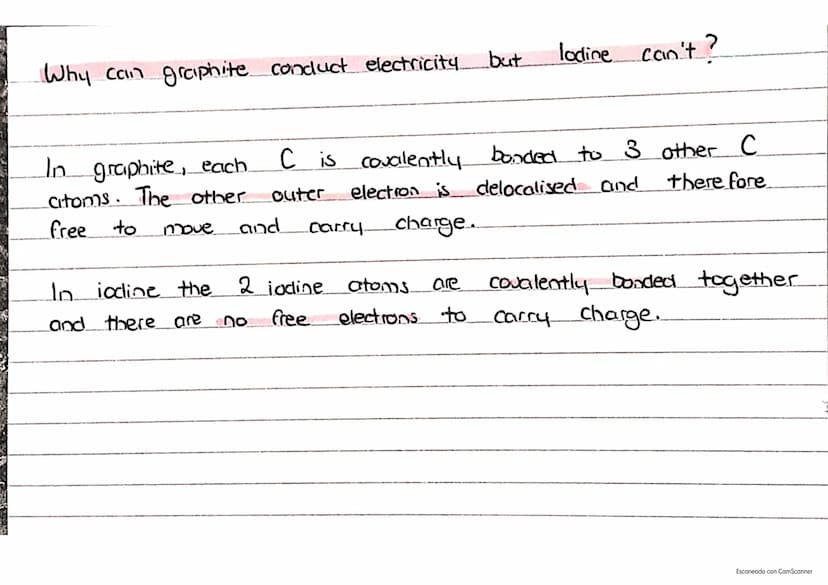 Why can graphite conduct electricity but Iodine can't?
In graphite, each C is covalently bonded to 3 other C
atoms. The other outer electron is delocalised and therefore
free to move and carry charge.
In iodine the 2 iodine atoms are covalently bonded together
and there are no free electrons to carry charge.
Escaneado con CamScanner